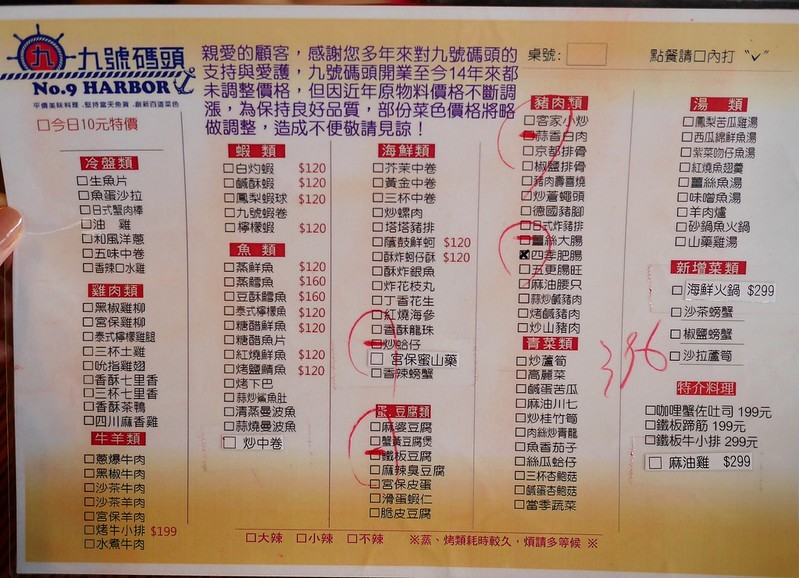 九 九號碼頭
No.9 HARBOR
平價美味料理．堅持當天魚貨．創新百道菜色
親愛的顧客，感謝您多年來對九號碼頭的
支持與愛護，九號碼頭開業至今14年來都
未調整價格，但因近年原物料價格不斷調
漲，為保持良好品質，部份菜色價格將略
做調整，造成不便敬請見諒！
桌號：
點餐請口內打 "✓"
□今日10元特價
冷盤類
□生魚片
□魚蛋沙拉
□日式蟹肉棒
□油 雞
□和風洋蔥
□五味中卷
□香辣口水雞
雞肉類
□黑椒雞柳
□宮保雞柳
□泰式檸檬雞腿
□三杯土雞
□吮指雞翅
□香酥七里香
□三杯七里香
□香酥茶鴨
□四川麻香雞
牛羊類
□蔥爆牛肉
□黑椒牛肉
□沙茶牛肉
□沙茶羊肉
□宮保羊肉
□烤牛小排 $199
□水煮牛肉
蝦 類
□白灼蝦 $120
□鹹酥蝦 $120
□鳳梨蝦球 $120
□九號蝦卷
□檸檬蝦 $120
魚 類
□蒸鮮魚 $120
□蒸鱈魚 $160
□豆酥鱈魚 $160
□泰式檸檬魚 $120
□糖醋鮮魚 $120
□糖醋魚片
□紅燒鮮魚 $120
□烤鹽鯖魚 $120
□烤下巴
□蒜炒鯊魚肚
□清蒸曼波魚
□蒜燒曼波魚
□炒中卷
海鮮類
□芥茉中卷
□黃金中卷
□三杯中卷
□炒螺肉
□塔塔豬排
□蔭鼓鮮蚵 $120
□酥炸蚵仔酥 $120
□酥炸銀魚
□炸花枝丸
□丁香花生
□紅燒海參
□香酥龍珠
□炒蛤仔
□宮保蜜山藥
□香辣螃蟹
蛋.豆腐類
□麻婆豆腐
□蟹黃豆腐煲
□鐵板豆腐
□麻辣臭豆腐
□宮保皮蛋
□滑蛋蝦仁
□脆皮豆腐
豬肉類
□客家小炒
□蒜香白肉
□京都排骨
□椒鹽排骨
□豬肉壽喜燒
□炒蒼蠅頭
□德國豬腳
□日式炸豬排
□薑絲大腸
□四季肥腸
□五更腸旺
□麻油腰只
□蒜炒鹹豬肉
□烤鹹豬肉
□炒山豬肉
青菜類
□炒蘆筍
□高麗菜
□鹹蛋苦瓜
□麻油川七
□炒桂竹筍
□肉絲炒青龍
□魚香茄子
□絲瓜蛤仔
□三杯杏鮑菇
□鹹蛋杏鮑菇
□當季蔬菜
湯 類
□鳳梨苦瓜雞湯
□西瓜綿鮮魚湯
□紫菜吻仔魚湯
□紅燒魚翅羹
□薑絲魚湯
□味噌魚湯
□羊肉爐
□砂鍋魚火鍋
□山藥雞湯
新增菜類
□海鮮火鍋 $299
□沙茶螃蟹
□椒鹽螃蟹
□沙拉蘆筍
336
特介料理
□咖哩蟹佐吐司 199元
□鐵板蹄筋 199元
□鐵板牛小排 299元
□麻油雞 $299
□大辣 □小辣 □不辣 ※蒸、烤類耗時較久，煩請多等候 ※